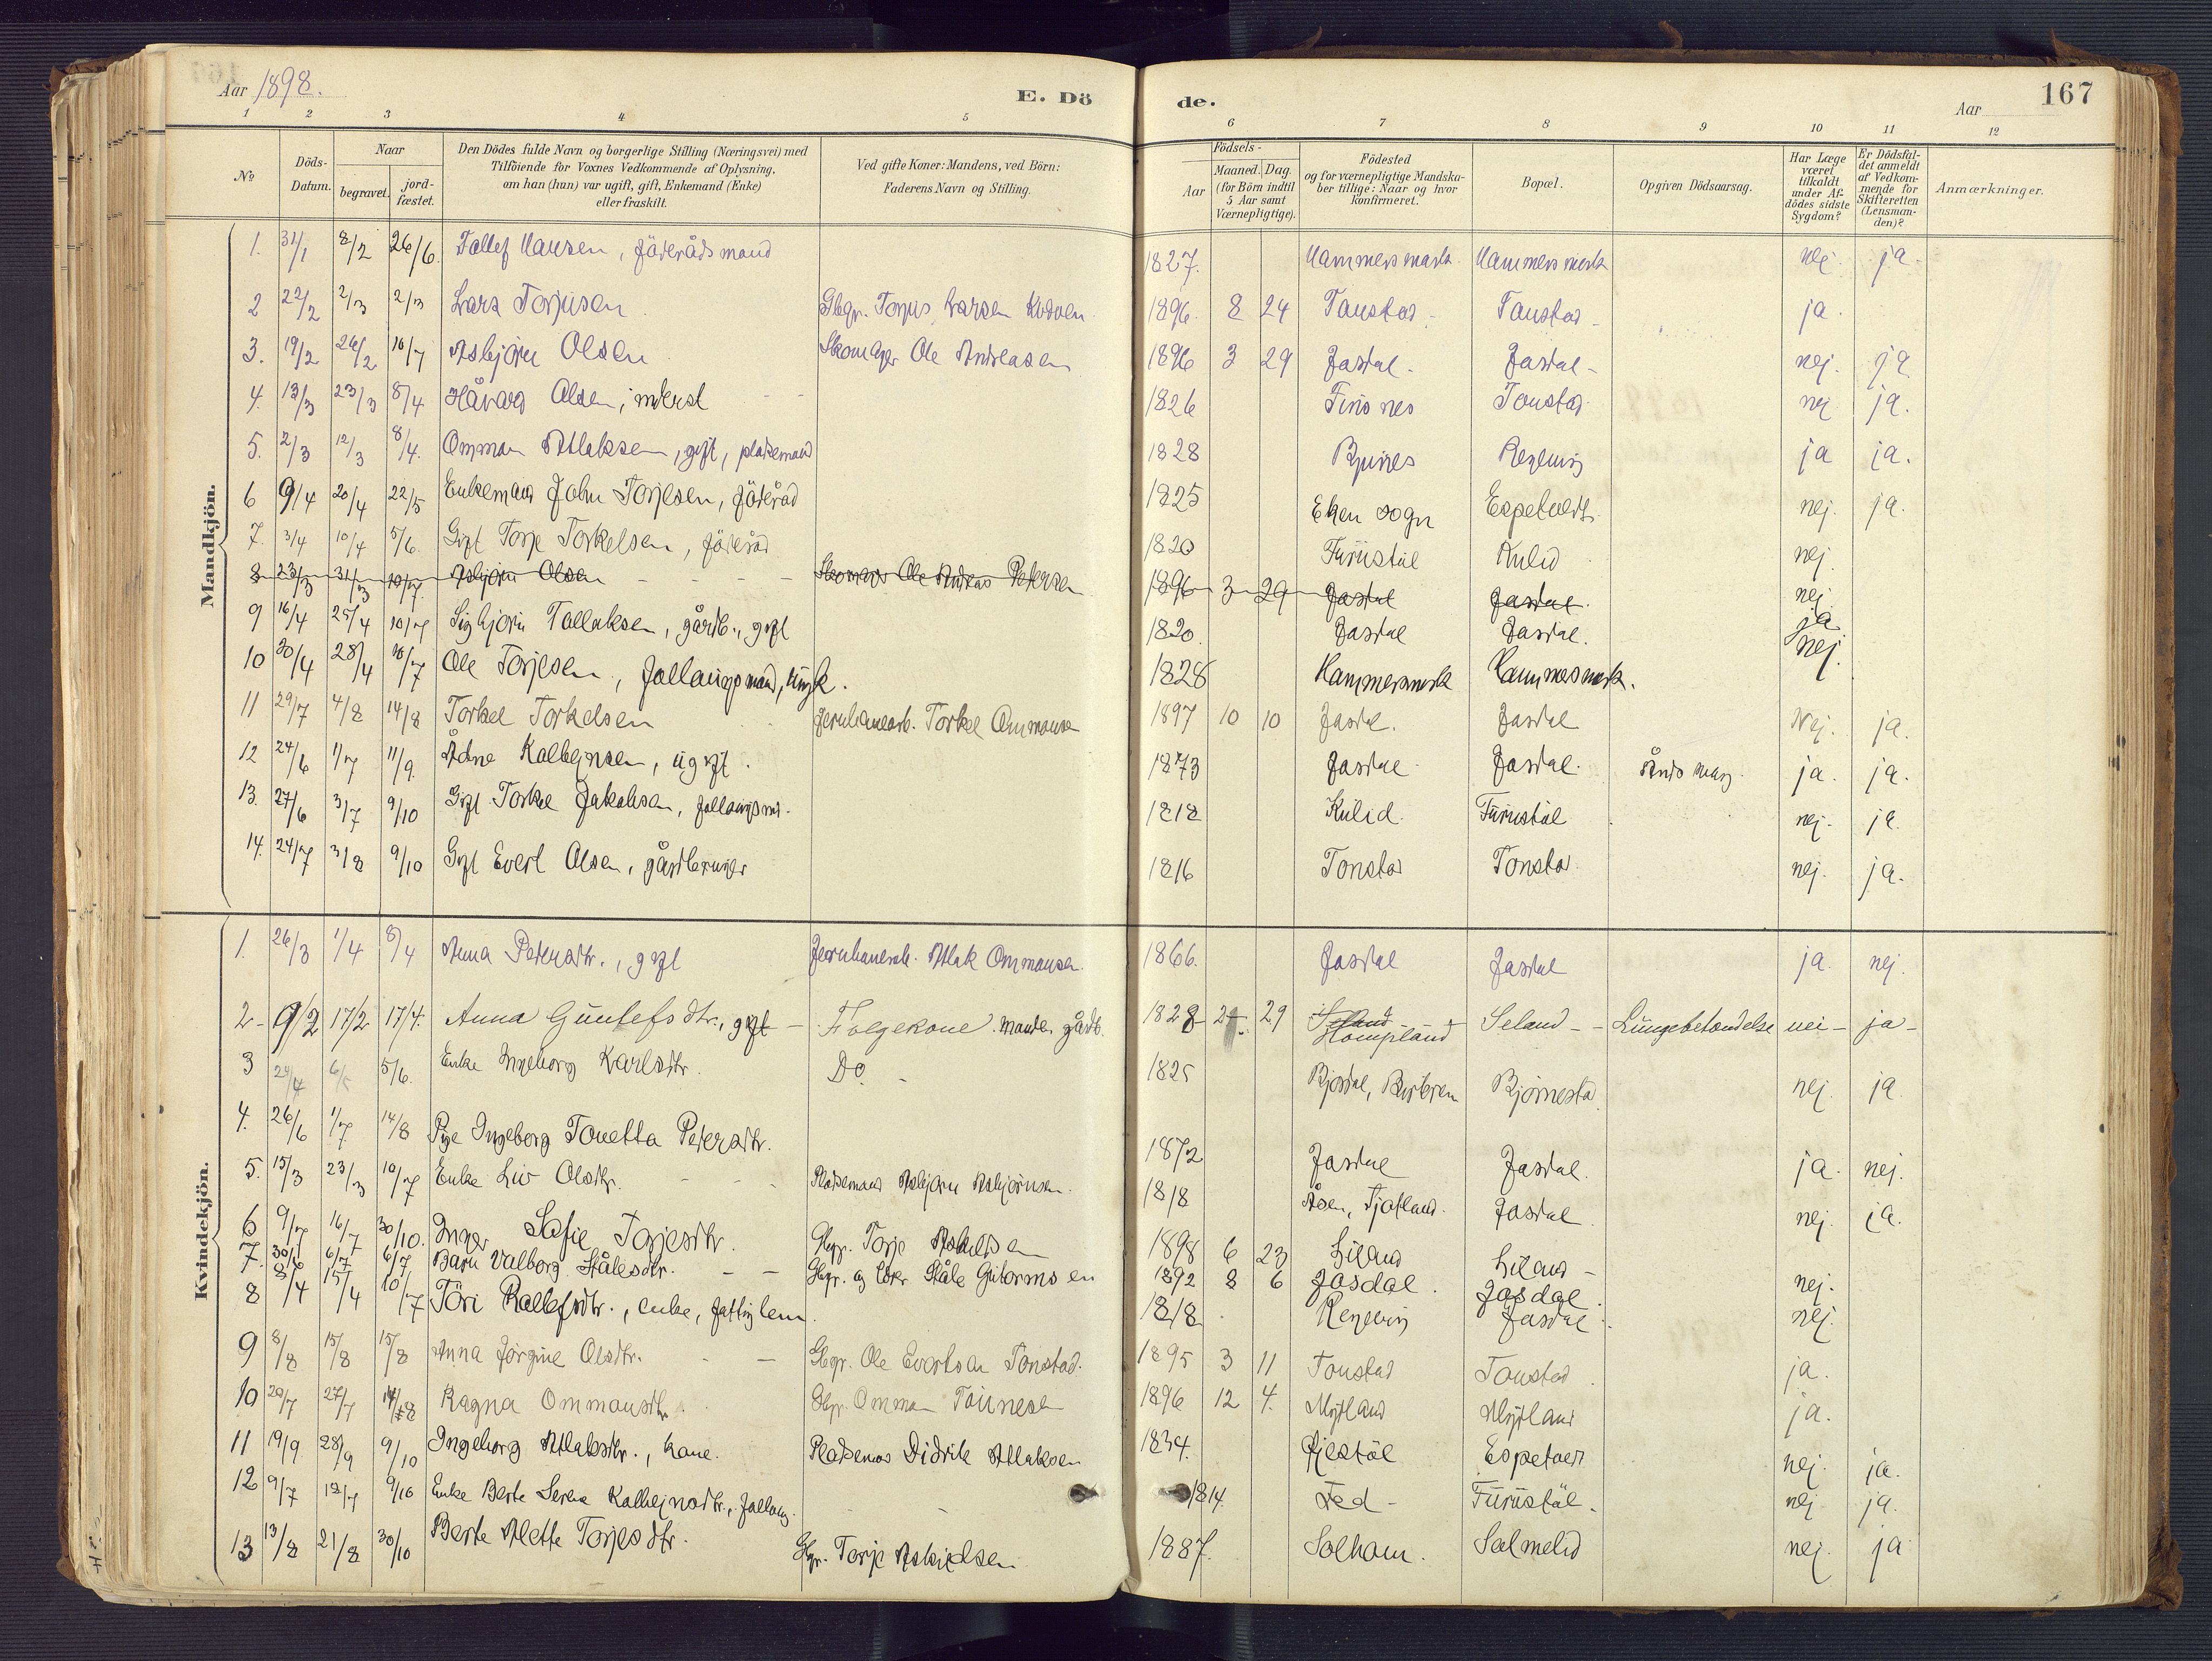 Aar 1898. E. Dö de. Aar 167
1 2 3 4 5 6 7 8 9 10 11 12
No Döds-Datum. Naar begravet. jordfæstet. Den Dödes fulde Navn og borgerlige Stilling (Næringsvei) med Tilföiende for Voxnes Vedkommende af Oplysning, om han (hun) var ugift, gift, Enkemand (Enke) eller fraskilt. Ved gifte Koner: Mandens, ved Börn: Faderens Navn og Stilling. Födsels- Aar Maaned. Dag. (for Börn indtil 5 Aar samt Værnepligtige). Födested og for værnepligtige Mandskaber tillige: Naar og hvor konfirmeret. Bopæl. Opgiven Dödsaarsag. Har Læge været tilkaldt under Afdödes sidste Sygdom? Er Dödsfaldet anmeldt af Vedkommende for Skifteretten (Lensmanden)? Anmærkninger.
Mandkjön.
1. 31/1 8/2 26/6. Tallef Hansen, föderådsmand 1827. Hammersmark Hammersmark nej ja.
2 22/2 2/3 2/3 Lars Torjusen Gbgr. Torjus Larsen 1896. 8 24 Tonstad Tonstad ja.
3. 19/2 26/2 10/7 Asbjörn Olsen Skomager Ole Andreasen 1896 3 29 Josdal. Josdal nej. ja
4. 13/3 23/3 8/4 Håvard Olsen, inderst 1826 Finsnes Tonstad nej ja.
5. 2/3 12/3 8/4. Omman Atlaksen, gift, pladsemand 1828 Bjunes ja ja.
6 9/4 20/4 22/5 Enkemand John Torjesen, föderåd 1825 Eken sogn Espetvedt. nej. ja.
7. 3/4 10/4 5/6. Gift Torje Torkelsen, föderåd 1820 Furustöl Kulid nej.
8 23/3 31/3 10/7. Asbjörn Olsen Skomager Ole Andreas Petersen 1896 3 29 Josdal Josdal. nej
9 16/4 25/4 10/7 Sigbjörn Tallaksen, gårdb., gift 1820. Josdal Josdal. ja
10 30/4 28/4 10/7 Ole Torjesen, 1828 Hammersmark Hammersmark. nej.
11 29/7 4/8 14/8 Torkel Torkelsen Jernbanearb. Torkel Ommansen 1897 10 10 Josdal. Josdal Nej. ja.
12 24/6 1/7 11/9. Ådne Kolbejnsen, ugift. 1873 Josdal. Josdal. ja. ja.
13. 27/6 3/7 9/10 Gift Torkel Jakobsen, 1818 Kulid. Furustöl nej. ja.
14. 24/7 3/8 9/10 Gift Evert Olsen, gårdbruger 1816 Tonstad Tonstad. nej. ja.
Kvindekjön.
1. 26/3 1/4 8/4 Anna Petersdtr., gift Jernbanearb. Atlak Ommansen. 1866. Josdal Josdal ja. nej.
2 - 9/2 17/2 17/4. Anna Guntefsdtr., gift - Folgekone. manden gårdb. 1828 29 Seland Hompland Seland - Lungebetændelse nei - ja -
3 24/4 6/5 5/6. Enke Ingeborg Karlsdtr. Do. 1825 Bjørnestad nej. ja.
4. 26/6 1/7 14/8 Pige Ingeborg Tonetta Petersdtr. 1872 Josdal Josdal. ja. nej.
5. 15/3 23/3 10/7 Enke Liv Olsdtr. Pladsemand Asbjörn Asbjörnsen. 1818 Åsen, Josdal nej. ja.
6 9/7 16/7 30/10. Inger Sofie Torjesdtr. Gbgr. Torje 1898 6 23 Liland Liland -
7. 30/6 6/7 6/7 Barn Valborg Ståledtr. Gbgr. og Lærer Ståle Gutormsen 1892 8 6 Josdal. Josdal. nej.
8 8/4 15/4 10/7 Töri dtr., enke, fattiglem. 1818 Josdal. nej.
9 8/8 15/8 15/8 Anna Jörgine Olsdtr. Gbgr. Ole Evertsen Tonstad. 1895 3 11 Tonstad Tonstad ja.
10 20/7 27/7 14/8 Ragna Ommansdtr. Gbgr. Omman 1896 12 4. ja.
11 19/9. 28/9 9/10 Ingeborg Atlaksdtr., kone. Pladsemand Didrik Atlaksen 1834. Espetvedt nej. ja.
12 9/7 18/7 9/10 Enke Berte Serina Kolbejnsdtr., 1814. Furustöl. nej. ja.
13 13/8 21/8 30/10 Berte Mette Torjesdtr. Gbgr. Torje 1887. Solhom. Salmelid nej. ja